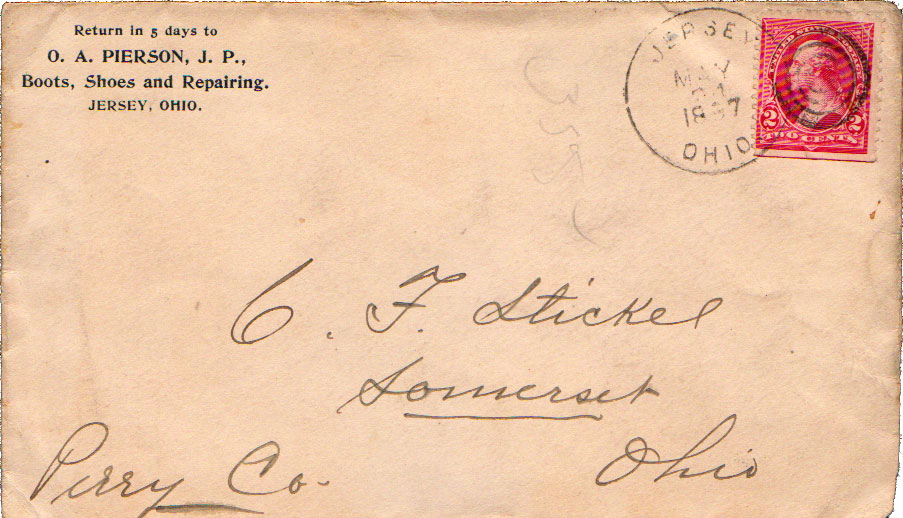 Return in 5 days to
O. A. PIERSON, J. P.,
Boots, Shoes and Repairing.
JERSEY, OHIO.
JERSEY
MAY
1897
OHIO
UNITED STATES POSTAGE
2 2
TWO CENTS
C. F. Stickel
Somerset
Perry Co. Ohio